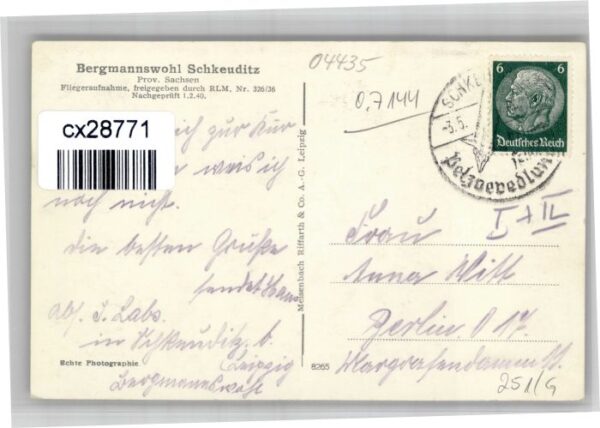 Bergmannswohl Schkeuditz
Prov. Sachsen
Fliegeraufnahme, freigegeben durch RLM, Nr. 326/36
Nachgeprüft 1.2.40.
04435
0,7144
cx28771
ich zur Kur
weis ich
noch nicht.
die besten Grüße
sendet
Abs. J. Labs.
in Schkeuditz b.
Leipzig
Bergmannswohl
Echte Photographie
Meissenbach Riffarth & Co. A.-G. Leipzig
8265
6 6
Deutsches Reich
SCHKE
-3.5.
Pelzveredlung
I + II
Frau
Anna Witt
Berlin. O 17.
251/G